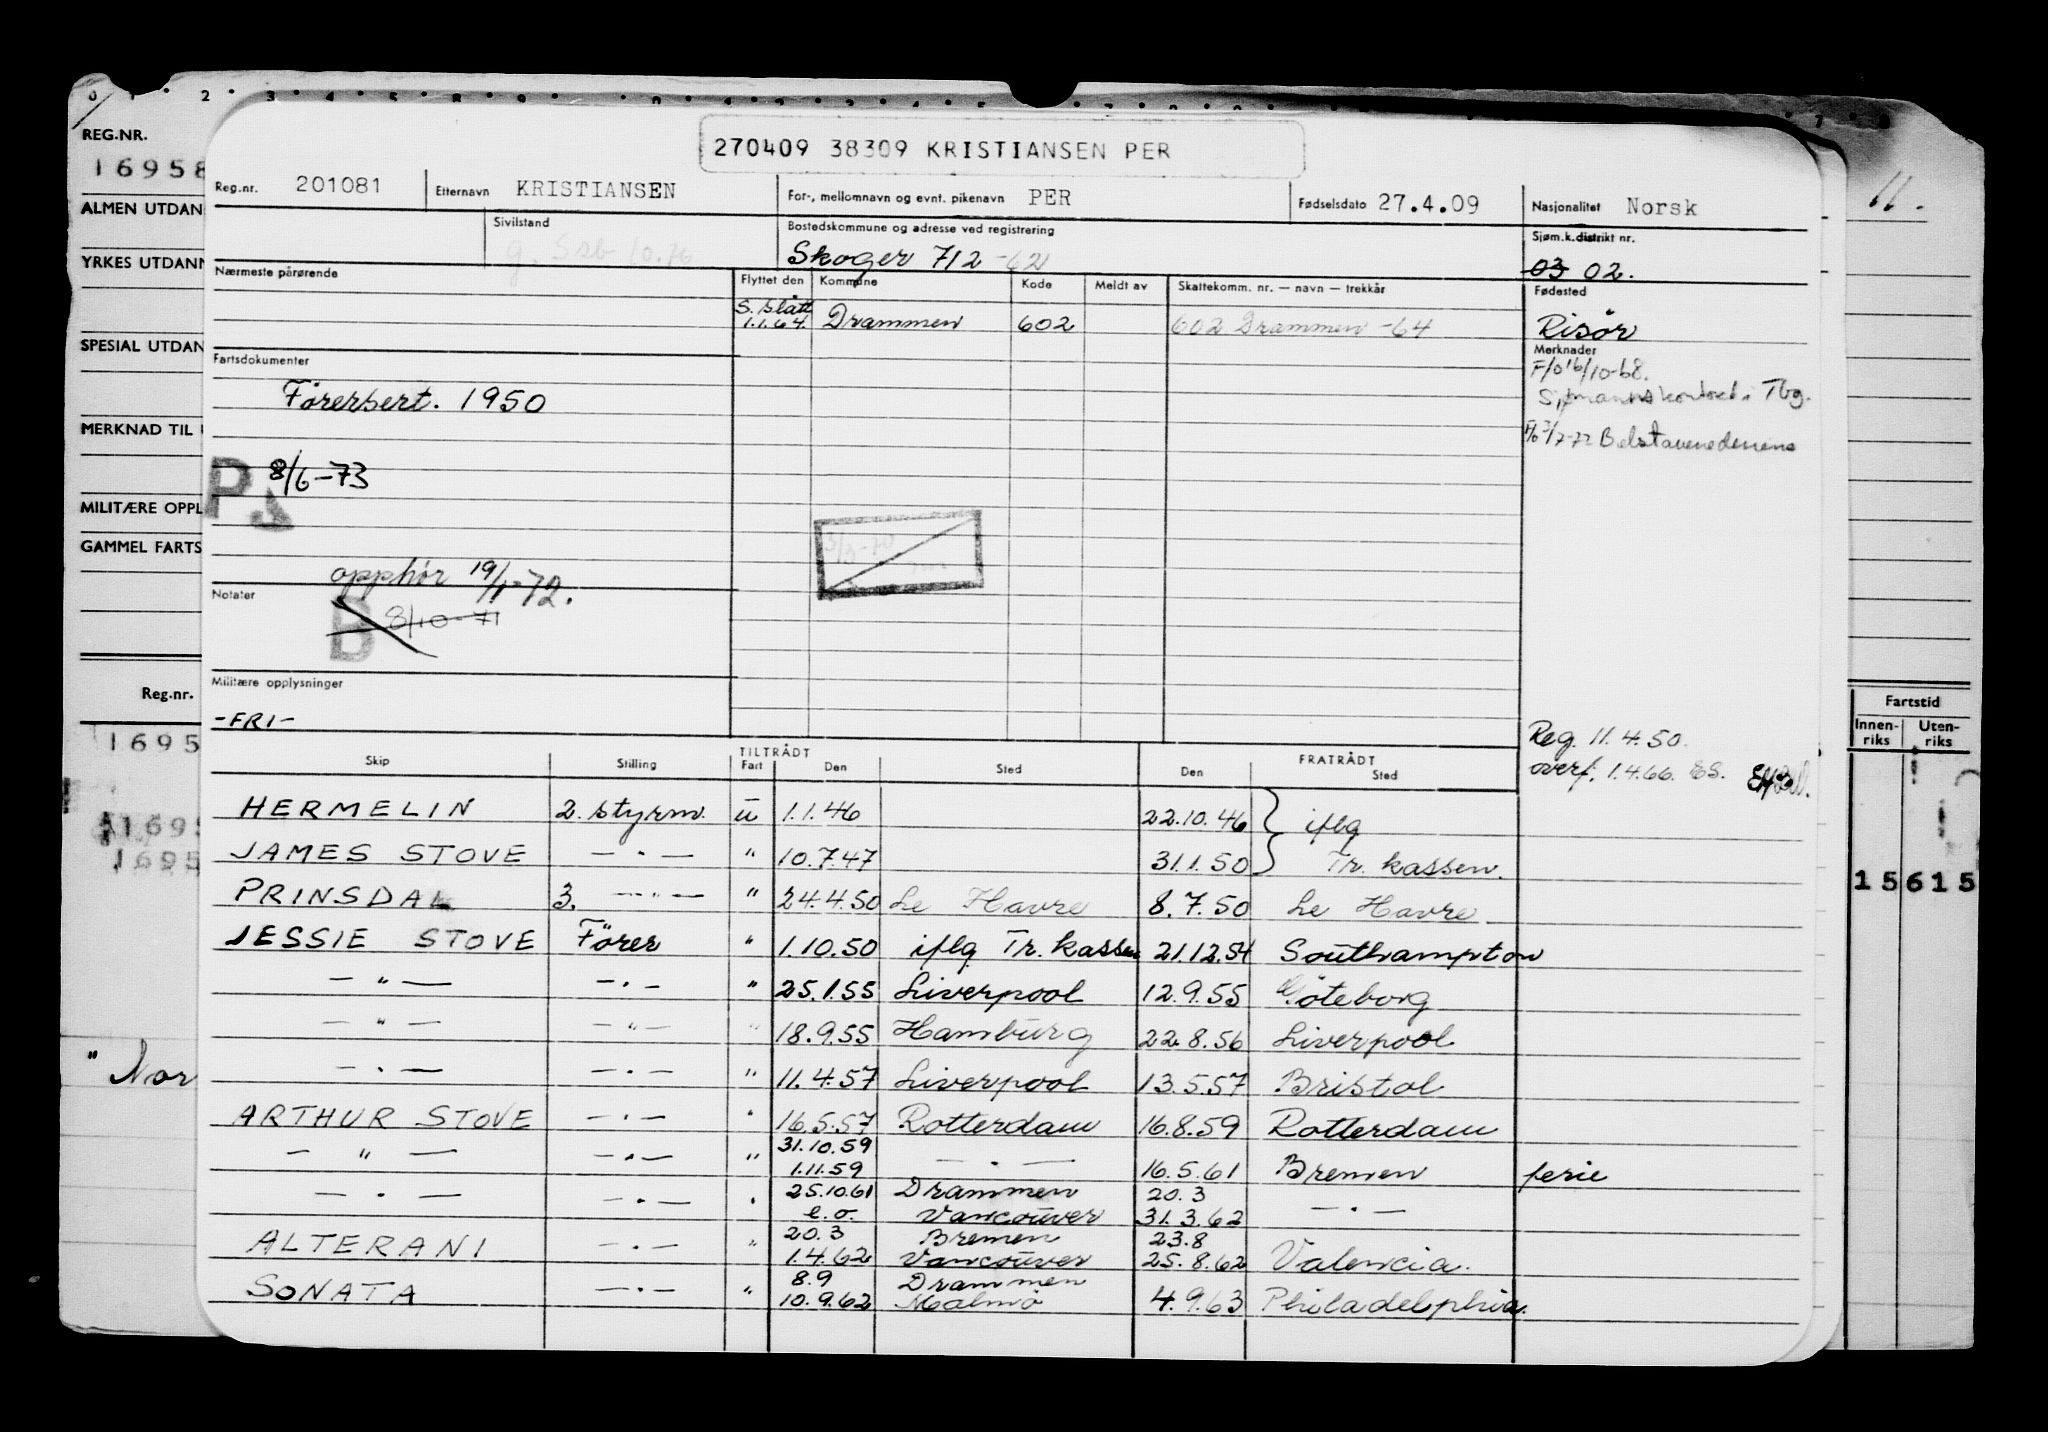 270409 38309 KRISTIANSEN PER
Reg.nr. 201081 Etternavn KRISTIANSEN For-, mellomnavn og evnt. pikenavn PER Fødselsdato 27.4.09 Nasjonalitet Norsk
Sivilstand Bostedskommune og adresse ved registrering Sjøm.k.distrikt nr.
g. 10.76 Skoger 712 -62 03 02.
Nærmeste pårørende Flyttet den Kommune Kode Meldt av Skattekomm. nr. — navn — trekkår Fødested
S. slått
1.1.64 Drammen 602 602 Drammen -64 Risör
Fartsdokumenter Merknader
F/o 16/10-68.
Förersert. 1950 Sjømannskontoret i Tbg.
F/o 7/2-72
P 8/6-73
3/3-70
opphör 19/1-72.
Notater
B 8/10-71
Militære opplysninger
-FRI-
Reg. 11.4.50.
overf. 1.4.66. ES.
TILTRÅDT FRATRÅDT
Skip Stilling Fart Den Sted Den Sted
HERMELIN 2. styrm. u 1.1.46 22.10.46 } iflg
JAMES STOVE — " — " 10.7.47 31.1.50 } Tr. kassen.
PRINSDAL 3. — " — " 24.4.50 Le Havre 8.7.50 Le Havre
JESSIE STOVE Förer " 1.10.50 iflg Tr. kassen 21.12.54 Southampton
— " — — " — " 25.1.55 Liverpool 12.9.55 Göteborg
— " — — " — " 18.9.55 Hamburg 22.8.56 Liverpool
— " — — " — " 11.4.57 Liverpool 13.5.57 Bristol
ARTHUR STOVE — " — " 16.5.57 Rotterdam 16.8.59 Rotterdam
31.10.59
— " — — " — " 1.11.59 — " — 16.5.61 Bremen ferie
25.10.61 Drammen 20.3
— " — — " — " e.o. Vancouver 31.3.62 — " —
20.3 Bremen 23.8
ALTERANI — " — " 1.4.62 Vancouver 25.8.62 Valencia.
8.9 Drammen
SONATA — " — " 10.9.62 Malmö 4.9.63 Philadelphia.
0 1 2 3 4 5 8 9
REG.NR.
16958
ALMEN UTDAN
YRKES UTDANN
SPESIAL UTDAN
MERKNAD TIL
MILITÆRE OPPL
GAMMEL FARTS
Reg.nr.
1695
1695
1695
" Nor
11.
Fartstid
Innen-riks Uten-riks
15615